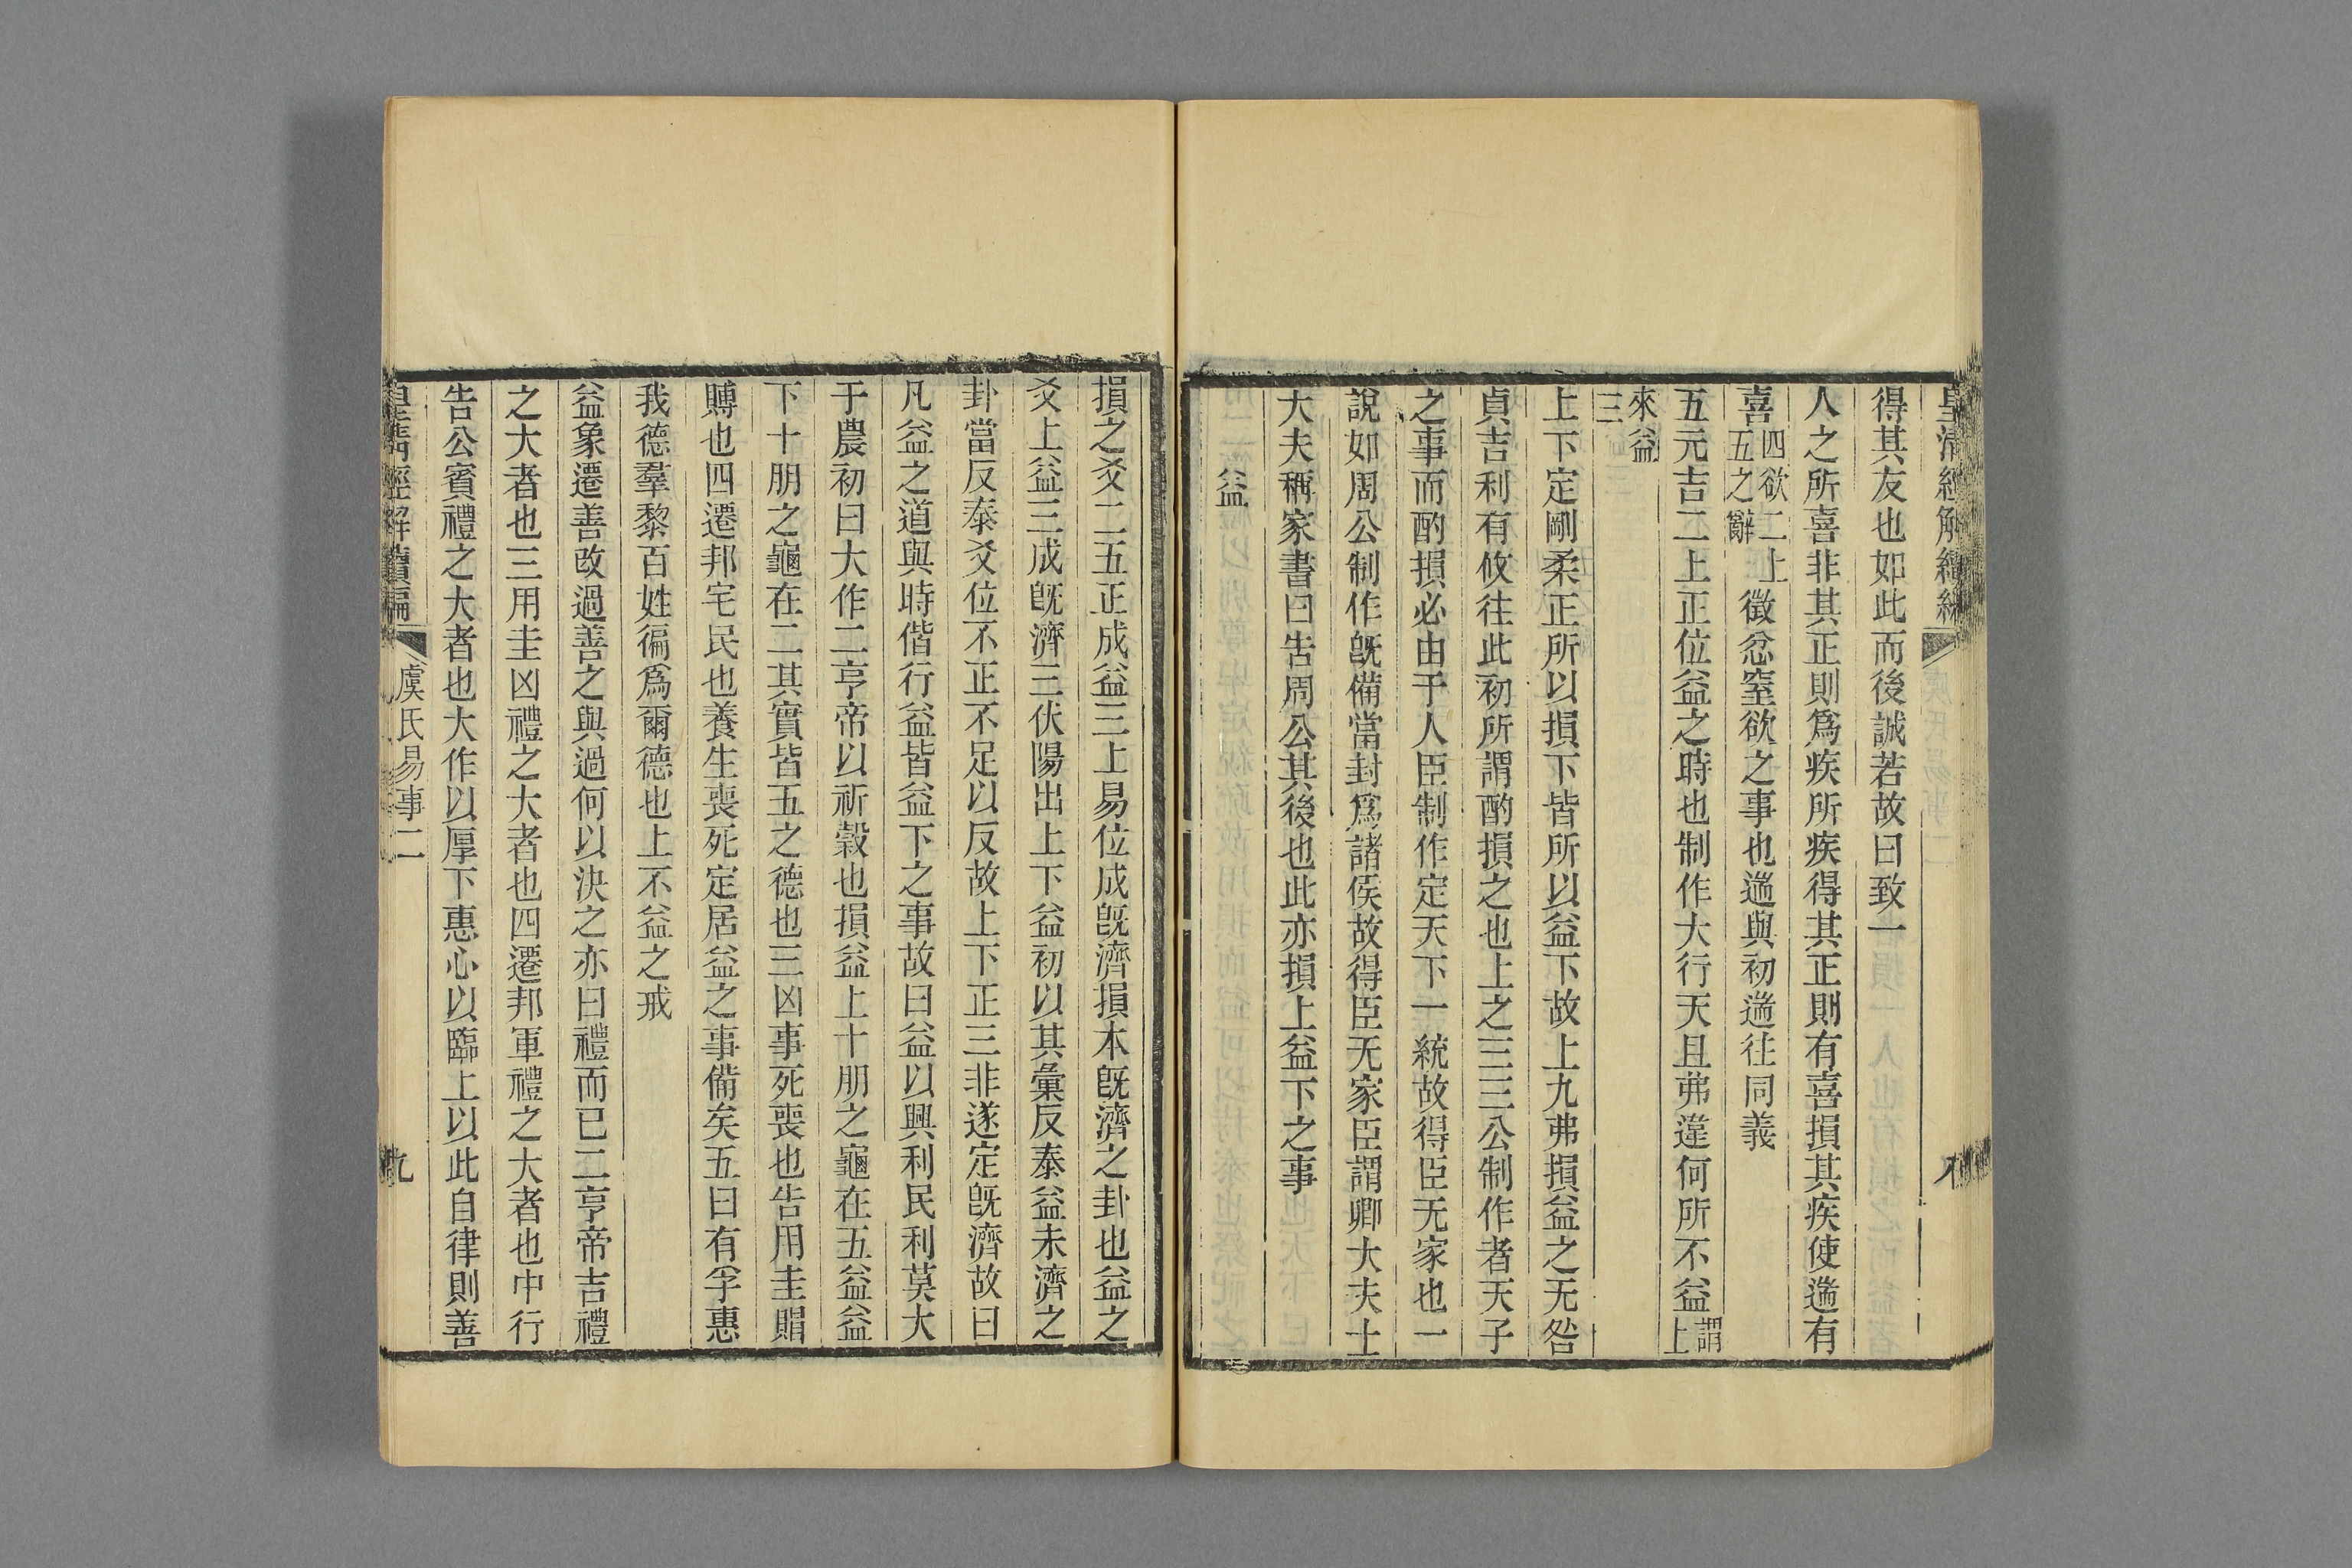 得其友也如此而後誠若故曰致一
人之所喜非其正則爲疾所疾得其正則有喜損其疾使遄有
喜四欲二上五之辭徵忿窒欲之事也遄與初遄往同義
五元吉二上正位益之時也制作大行天且弗違何所不益謂上
來益三
上下定剛柔正所以損下皆所以益下故上九弗損益之无咎
貞吉利有攸往此初所謂酌損之也上之三三公制作者天子
之事而酌損必由于人臣制作定天下一統故得臣无家也一
說如周公制作旣備當封爲諸侯故得臣无家臣謂卿大夫士
大夫稱家書曰告周公其後也此亦損上益下之事
益
損之爻二五正成益三上易位成旣濟損本旣濟之卦也益之
爻上益三成旣濟三伏陽出上下益初以其彙反泰益未濟之
卦當反泰爻位不正不足以反故上下正三非遂定旣濟故曰
凡益之道與時偕行益皆益下之事故曰益以興利民利莫大
于農初曰大作二亨帝以祈穀也損益上十朋之龜在五益益
下十朋之龜在二其實皆五之德也三凶事死喪也告用圭賵
賻也四遷邦宅民也養生喪死定居益之事備矣五曰有孚惠
我德羣黎百姓徧爲爾德也上不益之戒
益象遷善改過善之與過何以決之亦曰禮而已二亨帝吉禮
之大者也三用圭凶禮之大者也四遷邦軍禮之大者也中行
告公賓禮之大者也大作以厚下惠心以臨上以此自律則善
皇淸經解續編
虞氏易事二
九